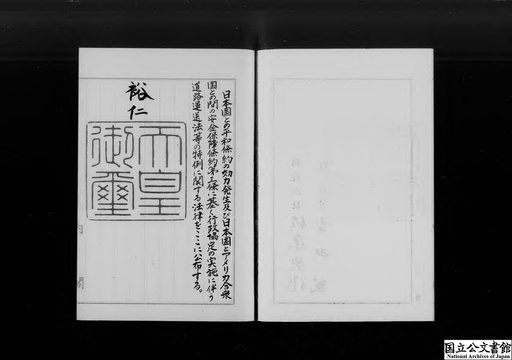 日本国との平和條約の効力発生及び日本国とアメリカ合衆
国との間の安全保障條約第三條に基く行政協定の実施に伴う
道路運送法等の特例に関する法律をここに公布する。
裕仁
天皇
御璽
国立公文書館
National Archives of Japan